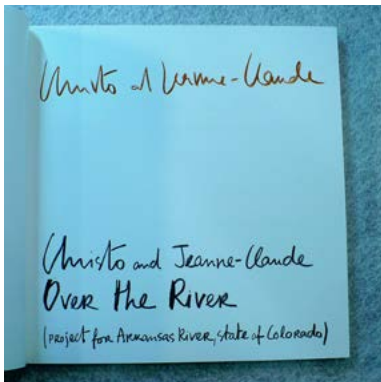 Christo et Jeanne-Claude
Christo and Jeanne-Claude
Over the River
(project for Arkansas River, state of Colorado)